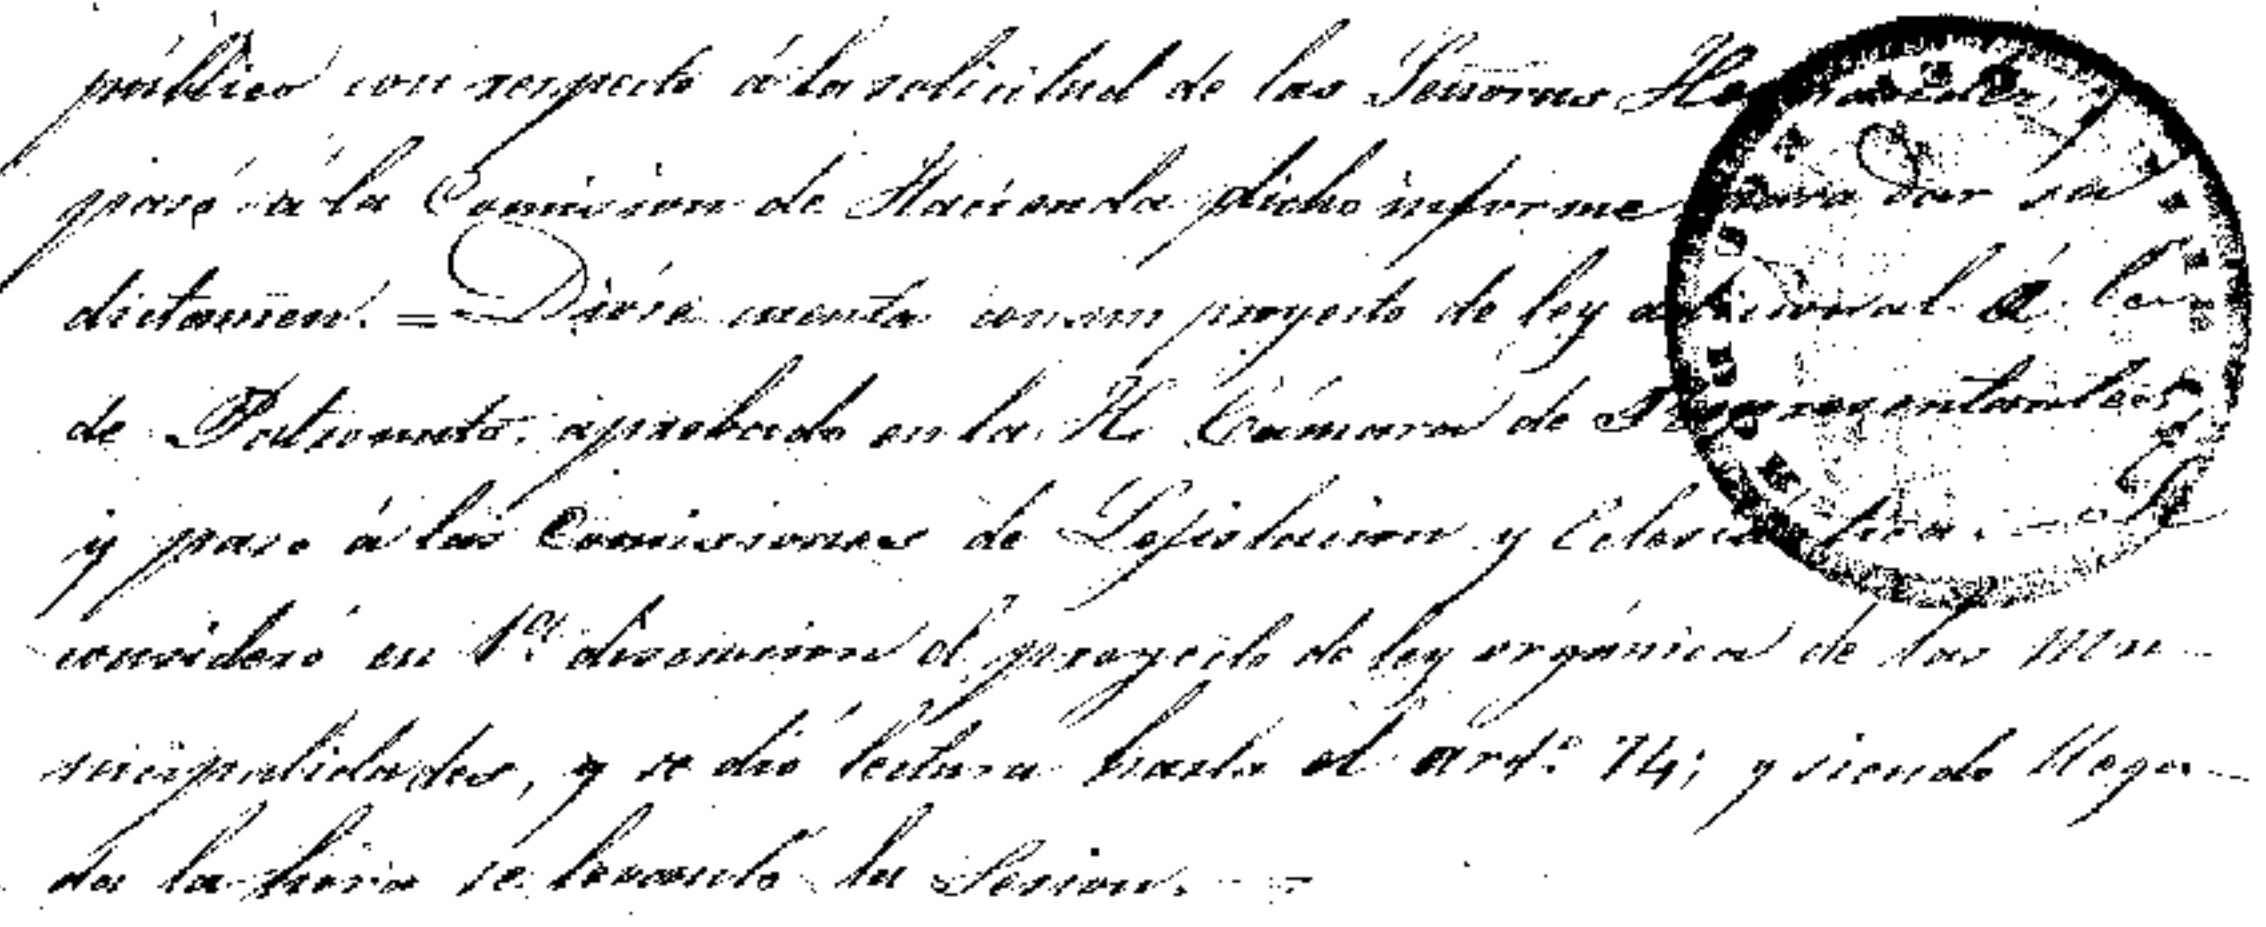 público con respecto á la solicitud de las Señoras Hernandez,
pasó á la Comision de Hacienda dicho informe para dar su
dictamen. = Dióse cuenta con un proyecto de ley adicional á la
de Patronato, aprobado en la H. Cámara de Representantes,
y pasó á las Comisiones de Lejislacion y Eclesiástica. — Se
consideró en 1ª discusion el proyecto de ley orgánica de las Mu-
nicipalidades, y se dió lectura hasta el art.º 74; y siendo llega-
da la hora se levantó la Sesion. =